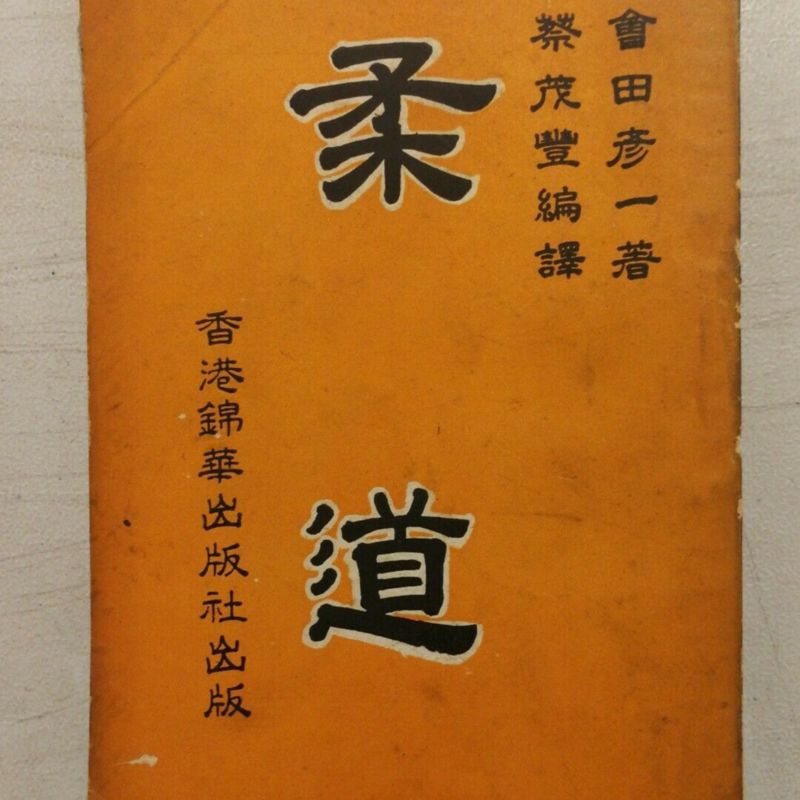 會田彥一著
蔡茂豐編譯
柔道
香港錦華出版社出版